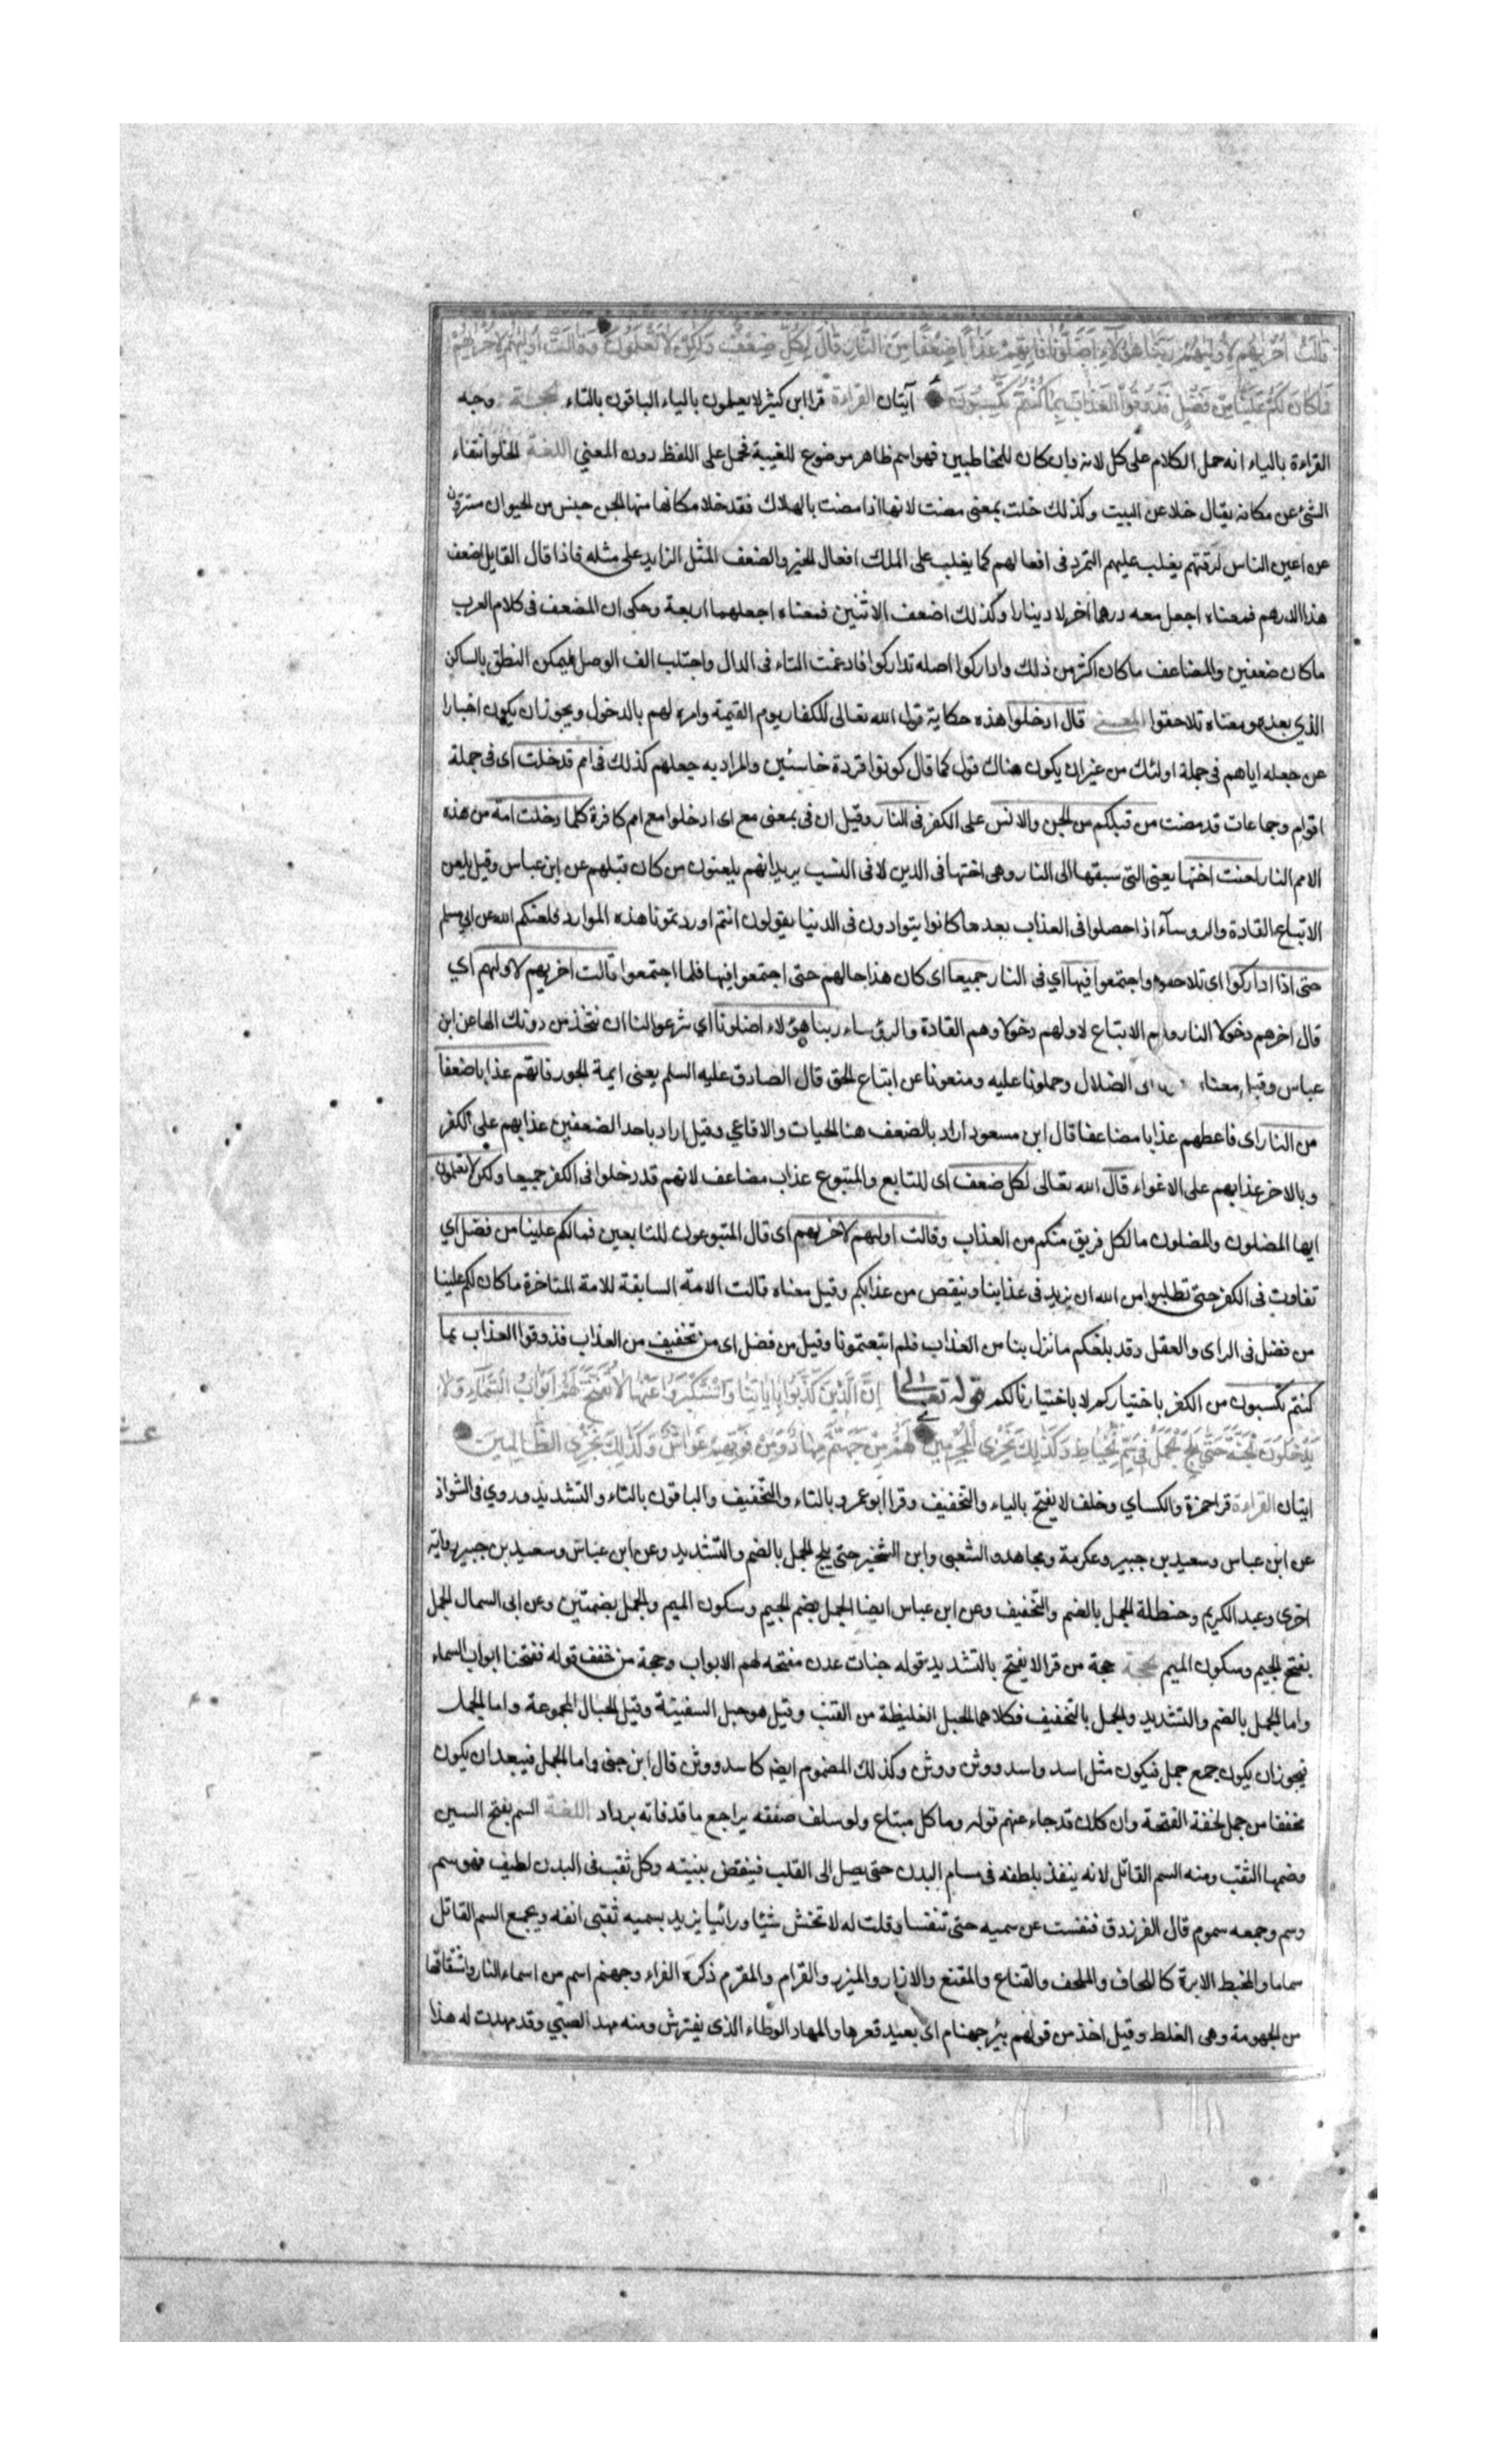 قالَتْ اُخْرٰیهُمْ لِاُولٰیهُمْ رَبَّنَا هٰؤُلَاءِ اَضَلُّونَا فَآتِهِمْ عَذَابًا ضِعْفًا مِنَ النَّارِ قَالَ لِكُلٍّ ضِعْفٌ وَلٰكِنْ لَا تَعْلَمُونَ وَقَالَتْ اُولٰیهُمْ لِاُخْرٰیهُمْ
فَمَا كَانَ لَكُمْ عَلَيْنَا مِنْ فَضْلٍ فَذُوقُوا الْعَذَابَ بِمَا كُنْتُمْ تَكْسِبُونَ آيتان القراءة قرا ابن كثير لا يعلمون بالياء الباقون بالتاء الحجة وجه
القراءة بالياء انه حمل الكلام على كل لانه وان كان للمخاطبين فهو اسم ظاهر موضوع للغيبة فحمل على اللفظ دون المعني اللغة الخلو انتفاء
الشئ عن مكانه يقال خلا عن البيت وكذلك خلت بمعنى مضت لانها اذا مضت بالهلاك فقد خلا مكانها منها الجن جنس من الحيوان مستترون
عن اعين الناس لرقتهم يغلب عليهم التمرد فى افعالهم كما يغلب على الملك افعال الخير والضعف المثل الزايد على مثله فاذا قال القايل اضعف
هذا الدرهم فمعناه اجعل معه درهما اخر لا دينارا وكذلك اضعف الاثنين فمعناه اجعلهما اربعة وحكى ان المضعف فى كلام العرب
ما كان ضعفين والمضاعف ما كان اكثر من ذلك واداركوا اصله تداركوا فادغمت التاء فى الدال واجتلب الف الوصل ليمكن النطق بالساكن
الذي بعده ومعناه تلاحقوا المعنى قال ادخلوا هذه حكاية قول الله تعالى للكفار يوم القيمة وامره لهم بالدخول ويجوز ان يكون اخبارا
عن جعله اياهم فى جملة اولئك من غير ان يكون هناك قول كما قال كونوا قردة خاسئين والمراد به جعلهم كذلك فى امم قد خلت اى فى جملة
اقوام وجماعات قد مضت من قبلكم من الجن والانس على الكفر فى النار وقيل ان فى بمعنى مع اى ادخلوا مع امم كافرة كلما دخلت امة من هذه
الامم النار لعنت اختها يعنى التى سبقتها الى النار وهى اختها فى الدين لا فى النسب يريد انهم يلعنون من كان قبلهم عن ابن عباس وقيل يلعن
الاتباع القادة والروسآء اذا حصلوا فى العذاب بعد ما كانوا يتوادون فى الدنيا يقولون انتم اوردتمونا هذه الموارد فلعنكم الله عن ابي مسلم
حتى اذا اداركوا اى تلاحقوا واجتمعوا فيها اي فى النار جميعا اى كان هذا حالهم حتى اجتمعوا فيها فلما اجتمعوا قالت اخريهم لاوليهم اي
قال اخرهم دخولا النار وهم الاتباع لاولهم دخولا وهم القادة والرؤساء ربنا هؤلاء اضلونا اي شرعوا لنا ان نتخذ من دونك الها عن ابن
عباس وقيل معناه الى الضلال وحملونا عليه ومنعونا عن اتباع الحق قال الصادق عليه السلم يعنى ايمة الجور فاتهم عذابا ضعفا
من النار اى فاعطهم عذابا مضاعفا قال ابن مسعود اراد بالضعف هنا الحيات والافاعي وقيل اراد باحد الضعفين عذابهم على الكفر
وبالاخر عذابهم على الاغواء قال الله تعالى لكل ضعف اى للتابع والمتبوع عذاب مضاعف لانهم قد دخلوا فى الكفر جميعا ولكن لا تعلمون
ايها المضلون والمضلون ما لكل فريق منكم من العذاب وقالت اوليهم لاخريهم اى قال المتبوعون للتابعين فما لكم علينا من فضل اي
تفاوت فى الكفر حتى تطلبوا من الله ان يزيد فى عذابنا وينقص من عذابكم وقيل معناه قالت الامة السابقة للامة المتاخرة ما كان لكم علينا
من فضل فى الراى والعقل وقد بلغكم ما نزل بنا من العذاب فلم اتبعتمونا وقيل من فضل اى من تخفيف من العذاب فذوقوا العذاب بما
كنتم تكسبون من الكفر باختياركم لا باختيارنا لكم قوله تعالى اِنَّ الَّذِينَ كَذَّبُوا بِاٰيَاتِنَا وَاسْتَكْبَرُوا عَنْهَا لَا تُفَتَّحُ لَهُمْ اَبْوَابُ السَّمَاءِ وَلَا
يَدْخُلُونَ الْجَنَّةَ حَتّٰى يَلِجَ الْجَمَلُ فِى سَمِّ الْخِيَاطِ وَكَذٰلِكَ نَجْزِى الْمُجْرِمِينَ لَهُمْ مِنْ جَهَنَّمَ مِهَادٌ وَمِنْ فَوْقِهِمْ غَوَاشٍ وَكَذٰلِكَ نَجْزِى الظَّالِمِينَ
ايتان القراءة قرا حمزة والكساي وخلف لا يفتح بالياء والتخفيف وقرا ابو عمرو بالتاء والتخفيف والباقون بالتاء والتشديد وروي فى الشواذ
عن ابن عباس وسعيد بن جبير وعكرمة ومجاهد والشعبى وابن الشخير حتى يلج الجمل بالضم والتشديد وعن ابن عباس وسعيد بن جبير رواية
اخرى وعبد الكريم وحنظلة الجمل بالضم والتخفيف وعن ابن عباس ايضا الجمل بضم الجيم وسكون الميم والجمل بضمتين وعن ابى السمال الجمل
بفتح الجيم وسكون الميم الحجة حجة من قرا لا يفتح بالتشديد قوله جنات عدن مفتحه لهم الابواب وحجة من خفف قوله ففتحنا ابواب السماء
واما الجمل بالضم والتشديد والجمل بالتخفيف فكلاهما الحبل الغليظة من القنب وقيل هو حبل السفينة وقيل الحبال المجموعة واما الجمل
فيجوز ان يكون جمع جمل فيكون مثل اسد واسد ووثن ووثن وكذلك المضموم ايضا كاسد ووثن قال ابن جنى واما الجمل فيبعد ان يكون
مخففا من جمل لخفة الفتحة وان كان قد جاء عنهم قوله وما كل مبتاع ولو سلف صفقه يراجع ما قد فاته برداد اللغة السم بفتح السين
وضمها الثقب ومنه السم القاتل لانه ينفذ بلطفه فى مسام البدن حتى يصل الى القلب فينقض بنيته وكل ثقب فى البدن لطيف فهو سم
وسم وجمعه سموم قال الفرزدق فنفست عن سميه حتى تنفسا وقلت له لا تخش شيئا ورائيا يريد بسميه ثقبى انفه ويجمع السم القاتل
سماما والمخيط الابرة كاللحاف والملحف والقناع والمقنع والازار والميزر والقرام والمقرم ذكره الفراء وجهنم اسم من اسماء النار واشتقاقها
من الجهومة وهى الغلظ وقيل اخذ من قولهم بئر جهنام اى بعيد قعرها والمهاد الوطاء الذى يفترش ومنه مهد الصبى وقد مهدت له هذا